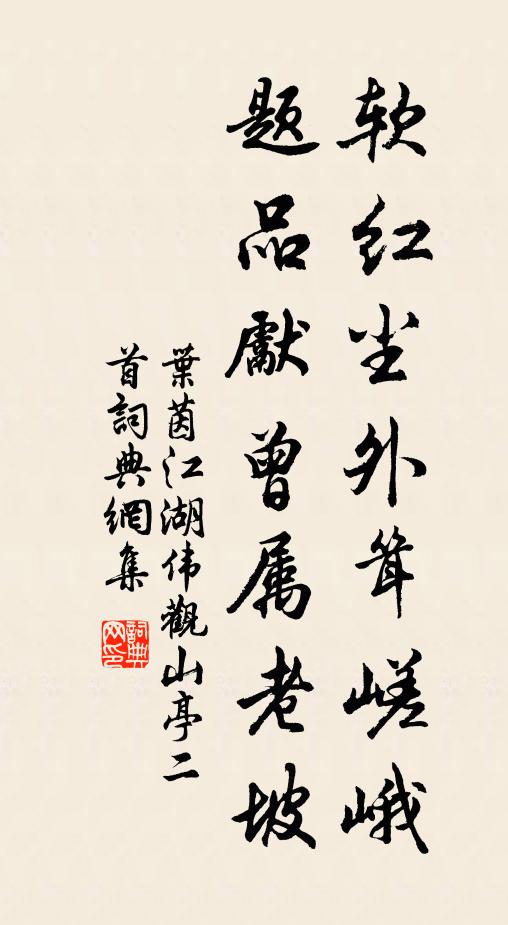 软红尘外耸嵯峨
题品獻曾属老坡
葉茵江湖伟觀山亭二
首詞典網集
詞典
网印